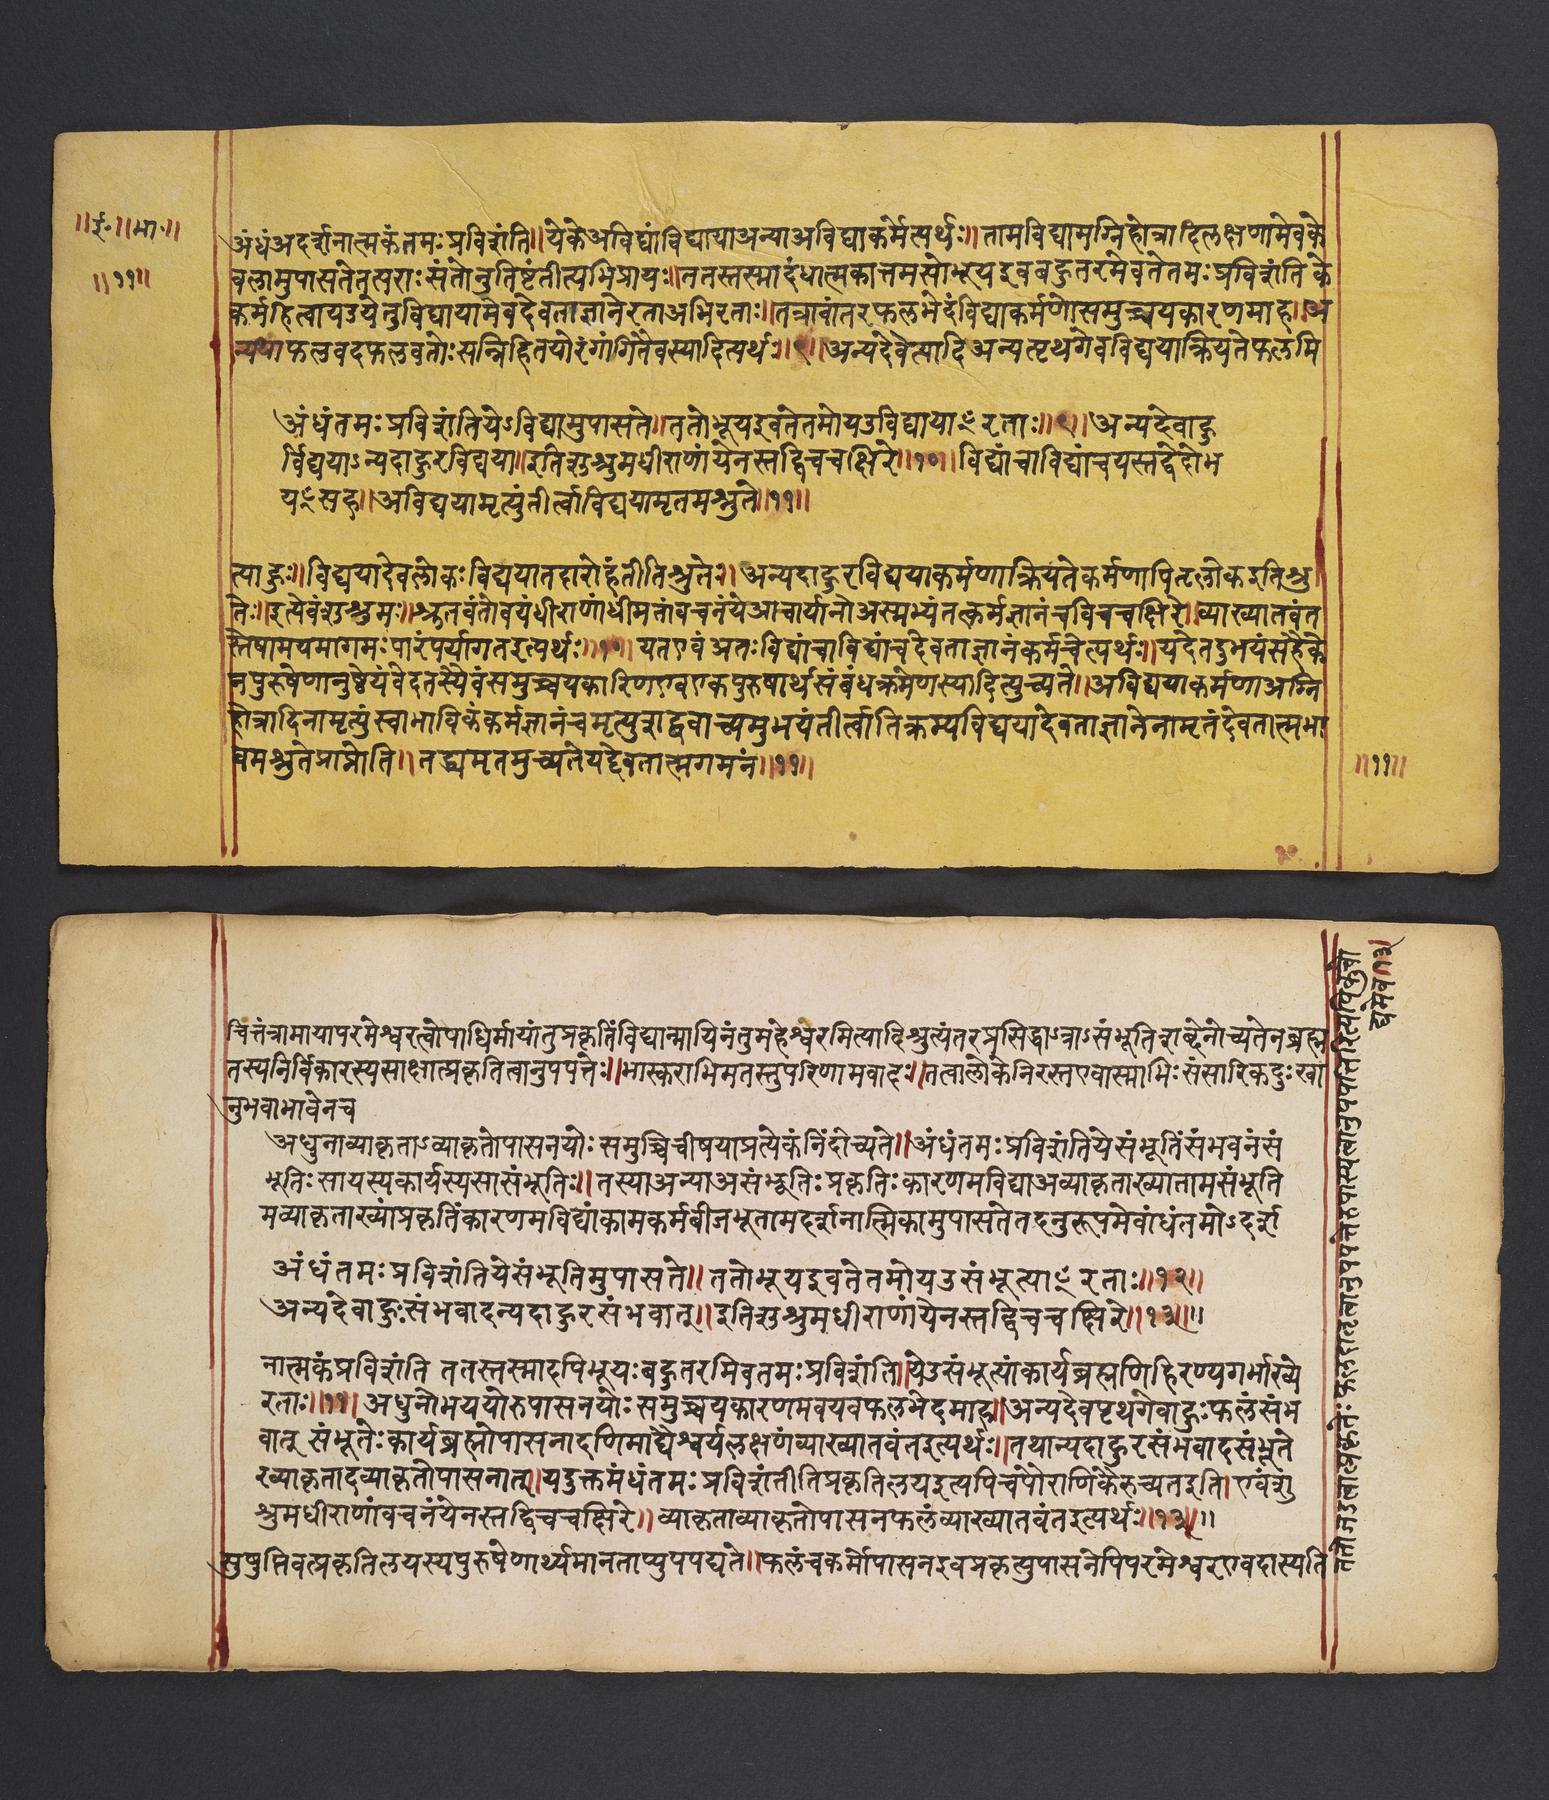 ॥ई॰॥भा॰॥
॥११॥
अंधंअदर्शनात्मकंतमःप्रविशंति॥येकेअविद्यांविद्यायाअन्याअविद्याकर्मेत्यर्थः॥तामविद्यामग्निहोत्रादिलक्षणामेवके
वलामुपासतेतत्पराःसंतोनुतिष्टंतीत्यभिप्रायः॥ततस्तस्मादंधात्मकात्तमसोभूयइवबहुतरमेवतेतमःप्रविशंतिके
कर्महित्वायउयेतुविद्यायामेवदेवताज्ञानेरताअभिरताः॥तत्रावांतरफलभेदंविद्याकर्मणोसमुच्चयकारणमाह॥अ
न्यथाफलवदफलवतोःसन्निहितयोरंगांगितैवस्यादित्यर्थः॥९॥अन्यदेवेत्यादिअन्यत्पृथगेवविद्ययाक्रियतेफलमि
अंधंतमःप्रविशंतियेऽविद्यामुपासते॥ततोभूयइवतेतमोयउविद्यायाꣳरताः॥९॥अन्यदेवाहु
र्विद्ययाऽन्यदाहुरविद्यया॥इतिशुश्रुमधीराणांयेनस्तद्विचचक्षिरे॥१०॥विद्यांचाविद्यांचयस्तद्वेदोभ
यꣳसह॥अविद्ययामृत्युंतीर्त्वाविद्ययामृतमश्नुते॥११॥
त्याहुः॥विद्ययादेवलोकःविद्ययातदारोहंतीतिश्रुतेः॥अन्यदाहुरविद्ययाकर्मणाक्रियंतेकर्मणापितृलोकइतिश्रु
तेः॥इत्येवंशुश्रुमः॥श्रुतवंतोवयंधीराणांधीमतांवचनंयेआचार्यानोअस्मभ्यंतत्कर्मज्ञानंचविचचक्षिरे॥व्याख्यातवंत
स्तेषामयमागमःपारंपर्यागतइत्यर्थः॥१०॥यतएवंअतःविद्यांचाविद्यांचदेवताज्ञानंकर्मचेत्यर्थः॥यदेतदुभयंसहैके
नपुरुषेणानुष्ठेयंवेदतस्यैवंसमुच्चयकारिणएवएकपुरुषार्थसंबंधक्रमेणस्यादित्युच्यते॥अविद्ययाकर्मणाअग्नि
होत्रादिनामृत्युंस्वाभाविकंकर्मज्ञानंचमृत्युशद्बवाच्यमुभयंतीर्त्वातिक्रम्यविद्ययादेवताज्ञानेनामृतंदेवतात्मभा
वमश्नुतेप्राप्नोति॥तद्ध्यमृतमुच्यतेयद्देवतात्मगमनं॥११॥
॥११॥
चित्तंत्रामायापरमेश्वरत्वोपाधिर्मायांतुप्रकृतिंविद्यान्मायिनंतुमहेश्वरमित्यादिश्रुत्यंतरप्रसिद्धाऽत्राऽसंभूतिशब्देनोच्यतेनब्रह्म
तस्यनिर्विकारस्यसाक्षात्प्रकृतित्वानुपपत्तेः॥भास्कराभिमतस्तुपरिणामवादः॥तत्वालोकेनिरस्तएवास्माभिःसंसारिकदुःखा
नुभवाभावेनच
अधुनाव्याकृताऽव्याकृतोपासनयोःसमुच्चिचीषयाप्रत्येकंनिंदोच्यते॥अंधंतमःप्रविशंतियेसंभूतिंसंभवनंसं
भूतिःसायस्यकार्यस्यसासंभूतिः॥तस्याअन्याअसंभूतिःप्रकृतिःकारणमविद्याअव्याकृताख्यातामसंभूति
मव्याकृताख्यांप्रकृतिंकारणमविद्यांकामकर्मबीजभूतामदर्शनात्मिकामुपासतेतदनुरूपमेवांधंतमोऽदर्श
अंधंतमःप्रविशंतियेसंभूतिमुपासते॥ततोभूयइवतेतमोयउसंभूत्याꣳरताः॥१२॥
अन्यदेवाहुःसंभवादन्यदाहुरसंभवात्॥इतिशुश्रुमधीराणांयेनस्तद्विचचक्षिरे॥१३॥॥
नात्मकंप्रविशंति ततस्तस्मादपिभूयःबहुतरमिवतमःप्रविशंति॥येउसंभूत्यांकार्यब्रह्मणिहिरण्यगर्भाख्ये
रताः॥१२॥अधुनोभययोरुपासनयोःसमुच्चयकारणमवयवफलभेदमाह॥अन्यदेवपृथगेवाहुःफलंसंभ
वात् संभूतेःकार्यब्रह्मोपासनादणिमाद्यैश्वर्यलक्षणंव्याख्यातवंतइत्यर्थः॥तथान्यदाहुरसंभवादसंभूते
रव्याकृतादव्याकृतोपासनात्॥यदुक्तमंधंतमःप्रविशंतीतिप्रकृतिलयइत्यपिचपौराणिकैरुच्यतइति॥एवंशु
श्रुमधीराणांवचनंयेनस्तद्विचचक्षिरे॥व्याकृताव्याकृतोपासनफलंव्याख्यातवंतइत्यर्थः॥१३॥॥
सुषुप्तिवत्प्रकृतिलयस्यपुरुषेणार्थ्यमानताप्युपपद्यते॥फलंचकर्मोपासनइवप्रकृत्युपासनेपिपरमेश्वरएवदास्यति